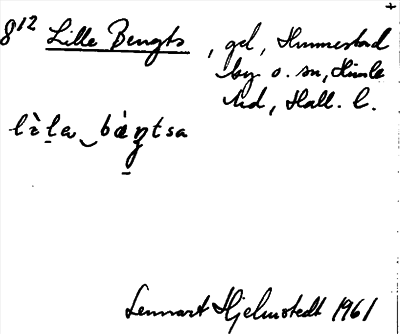 8¹² Lille Bengts, gd, Hunnestad
by o. sn, Himle
hd, Hall. l.
lὶl̠a‿bάŋ̠tsa
Lennart Hjelmstedt 1961